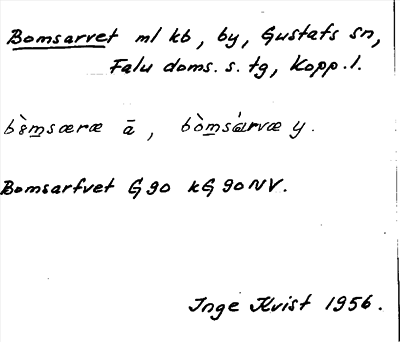 Bomsarvet ml kb, by, Gustafs sn,
Falu doms. s. tg, Kopp. l.
bὸmsæræ ā, bòmsárvæ y.
Bomsarfvet G 90 kG 90 NV.
Inge Kvist 1956.